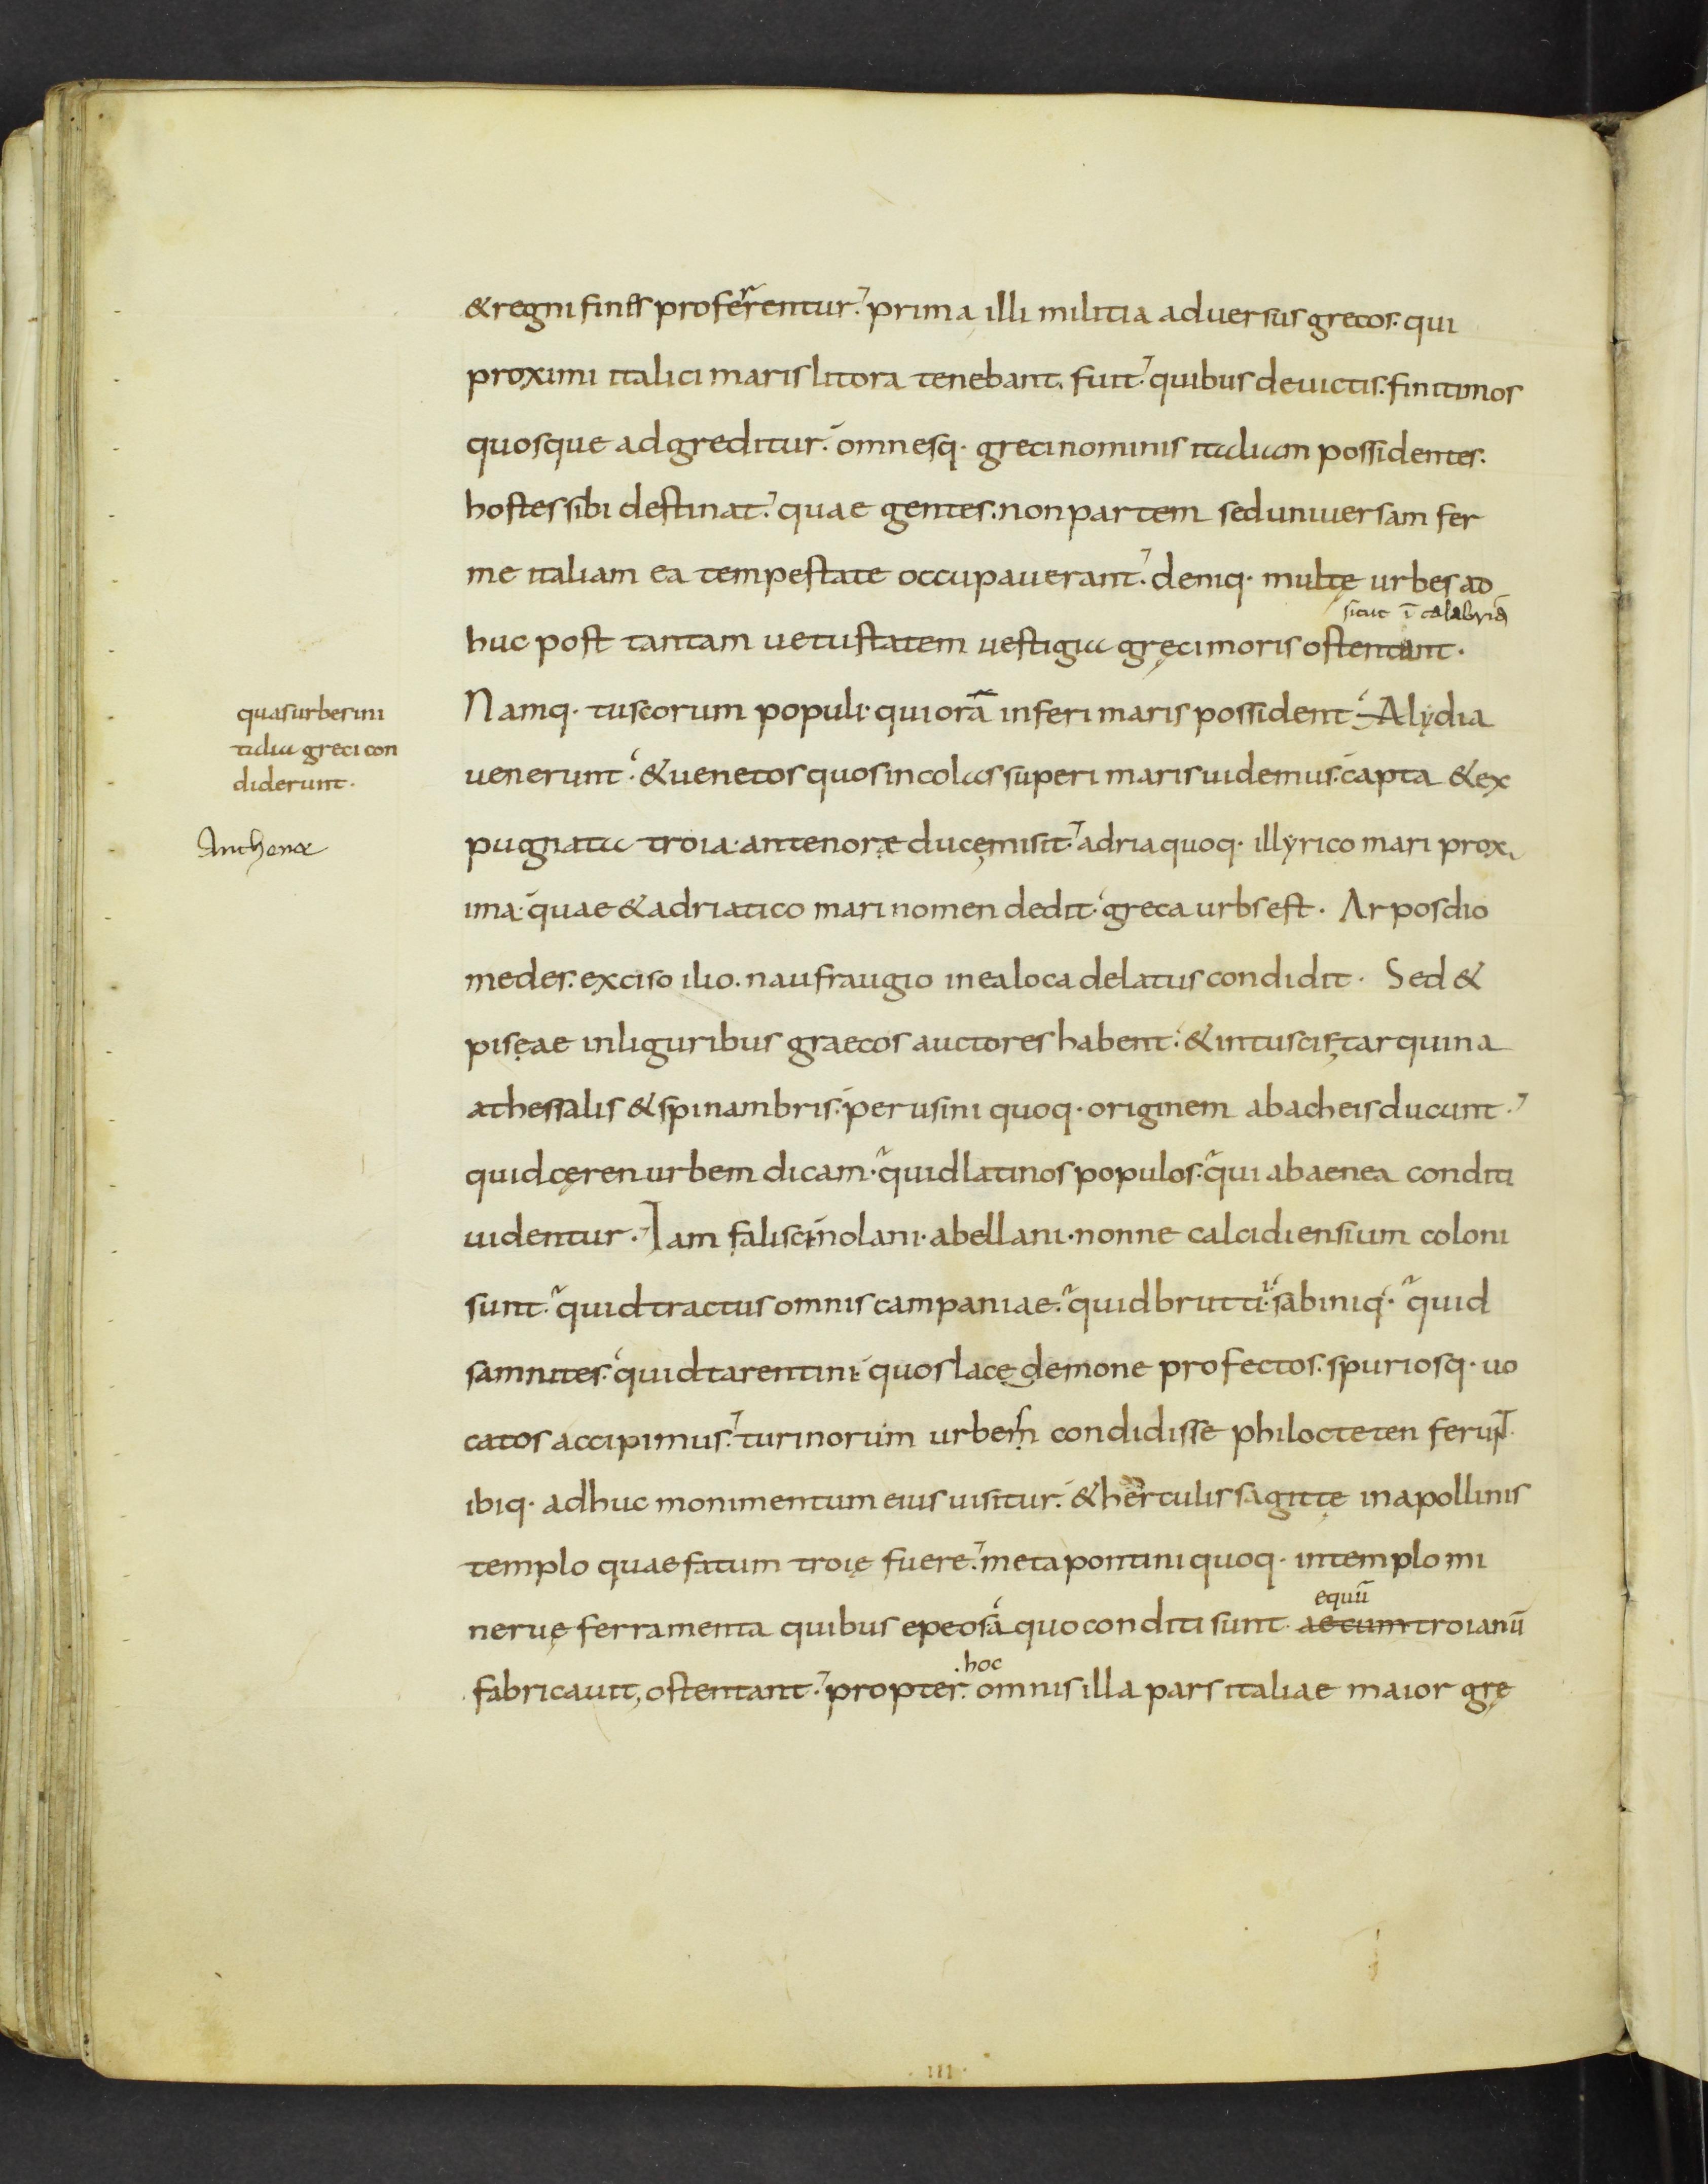 & regni fines proferrentur. prima illi militia aduersus grecos. qui
proximi italici maris litora tenebant, fuit. quibus deuictis. finitimos
quosque adgreditur. omnesq. greci nominis italiam possidentes.
hostes sibi destinat. quae gentes. non partem sed uniuersam fer
me italiam ea tempestate occupauerant. deniq. multę urbes ad
sicut ī calabriā
huc post tantam uetustatem uestigia gręci moris ostentant.
quas urbes in i
talia greci con
diderunt.
Namq. tuscorum populi. qui orā inferi maris possident. A lydia
uenerunt. & uenetos quos incolas superi maris uidemus. capta & ex
Anthenor
pugnata troia. antenore duce misit. adria quoq. illyrico mari prox
ima. quae & adriatico mari nomen dedit. greca urbs est. Arpos dio
medes. exciso ilio. naufraugio in ea loca delatus condidit. Sed &
piseae in liguribus graecos auctores habent. & in tuscis tarquina
a thessalis & spinambris. perusini quoq. originem ab acheis ducunt.
quid ceren urbem dicam. quid latinos populos. qui ab aenea conditi
uidentur. Iam falisci nolani. abellani. nonne calcidiensium coloni
sunt. quid tractus omnis campaniae. quid brutti. sabiniq. quid
samnites. quid tarentini. quos lacedemone profectos. spuriosq. uo
catos accipimus. turinorum urbem condidisse philocteten ferunt
ibiq. adhuc monimentum eius uisitur. & herculis sagittę in apollinis
templo quae fatum troię fuere. metapontini quoq. in templo mi
equū
neruę ferramenta quibus epeos a quo conditi sunt. aecum troianū
hoc
fabricauit, ostentant. propter. omnis illa pars italiae maior grę
III